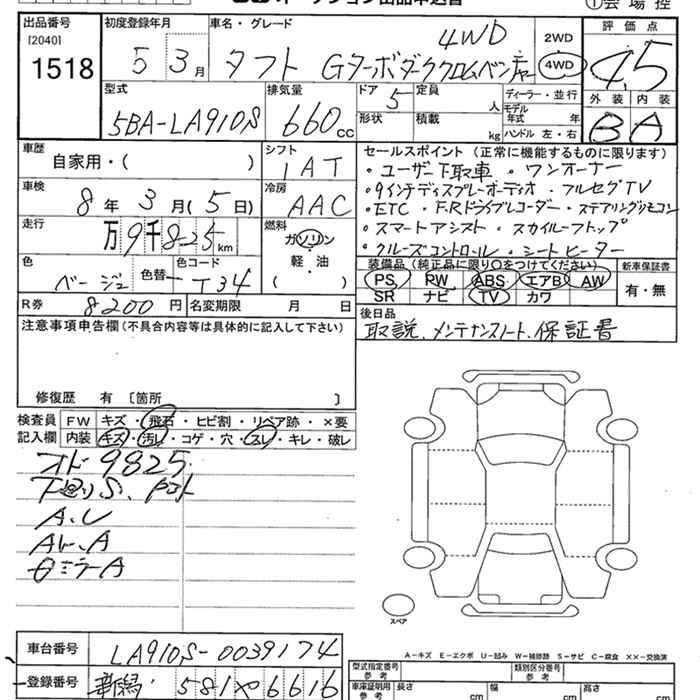 オークション出品申込書
①会場控
出品番号 [2040] 1518
初度登録年月 5 3月
車名・グレード 4WD
タフト Gターボダーククロムベンチャー
2WD
4WD
評価点 4.5
外装 B 内装 A
型式 5BA-LA910S
排気量 660cc
ドア 5
定員 人
形状
積載 kg
ディーラー・並行
モデル年式 年
ハンドル 左・右
車歴 自家用・( )
シフト IAT
車検 8年3月(5日)
冷房 AAC
走行 万9千825km
燃料 ガソリン・軽・油 ( )
色 ベージュ 色替
色コード T34
R券 8200円
名変期限 月 日
セールスポイント (正常に機能するものに限ります)
・ユーザー下取車 ・ワンオーナー
・9インチディスプレーオーディオ ・フルセグTV
・ETC ・F.Rドライブレコーダー ・ステアリングリモコン
・スマートアシスト ・スカイルーフトップ
・クルーズコントロール ・シートヒーター
装備品 (純正品に限り〇をつけてください)
PS PW ABS エアB AW
SR ナビ TV カワ
新車保証書 有・無
後日品
取説、メンテナンスノート、保証書
注意事項申告欄(不具合内容等は具体的に記入して下さい)
修復歴 有 〔箇所 〕
検査員記入欄
FW キズ・飛石・ヒビ割・リペア跡・×要
内装 キズ・汚れ・コゲ・穴・スレ・キレ・破レ
オド 9825
下回りS、
A.U
A
ミラーA
スペア
A-キズ E-エクボ U-凹み W-補修跡 S-サビ C-腐食 ××-交換済
車台番号 LA910S-0039174
登録番号 新潟 581 や 6616
型式指定番号 参考
類別区分番号 参考
車庫証明用 参考
長さ cm
幅 cm
高さ cm